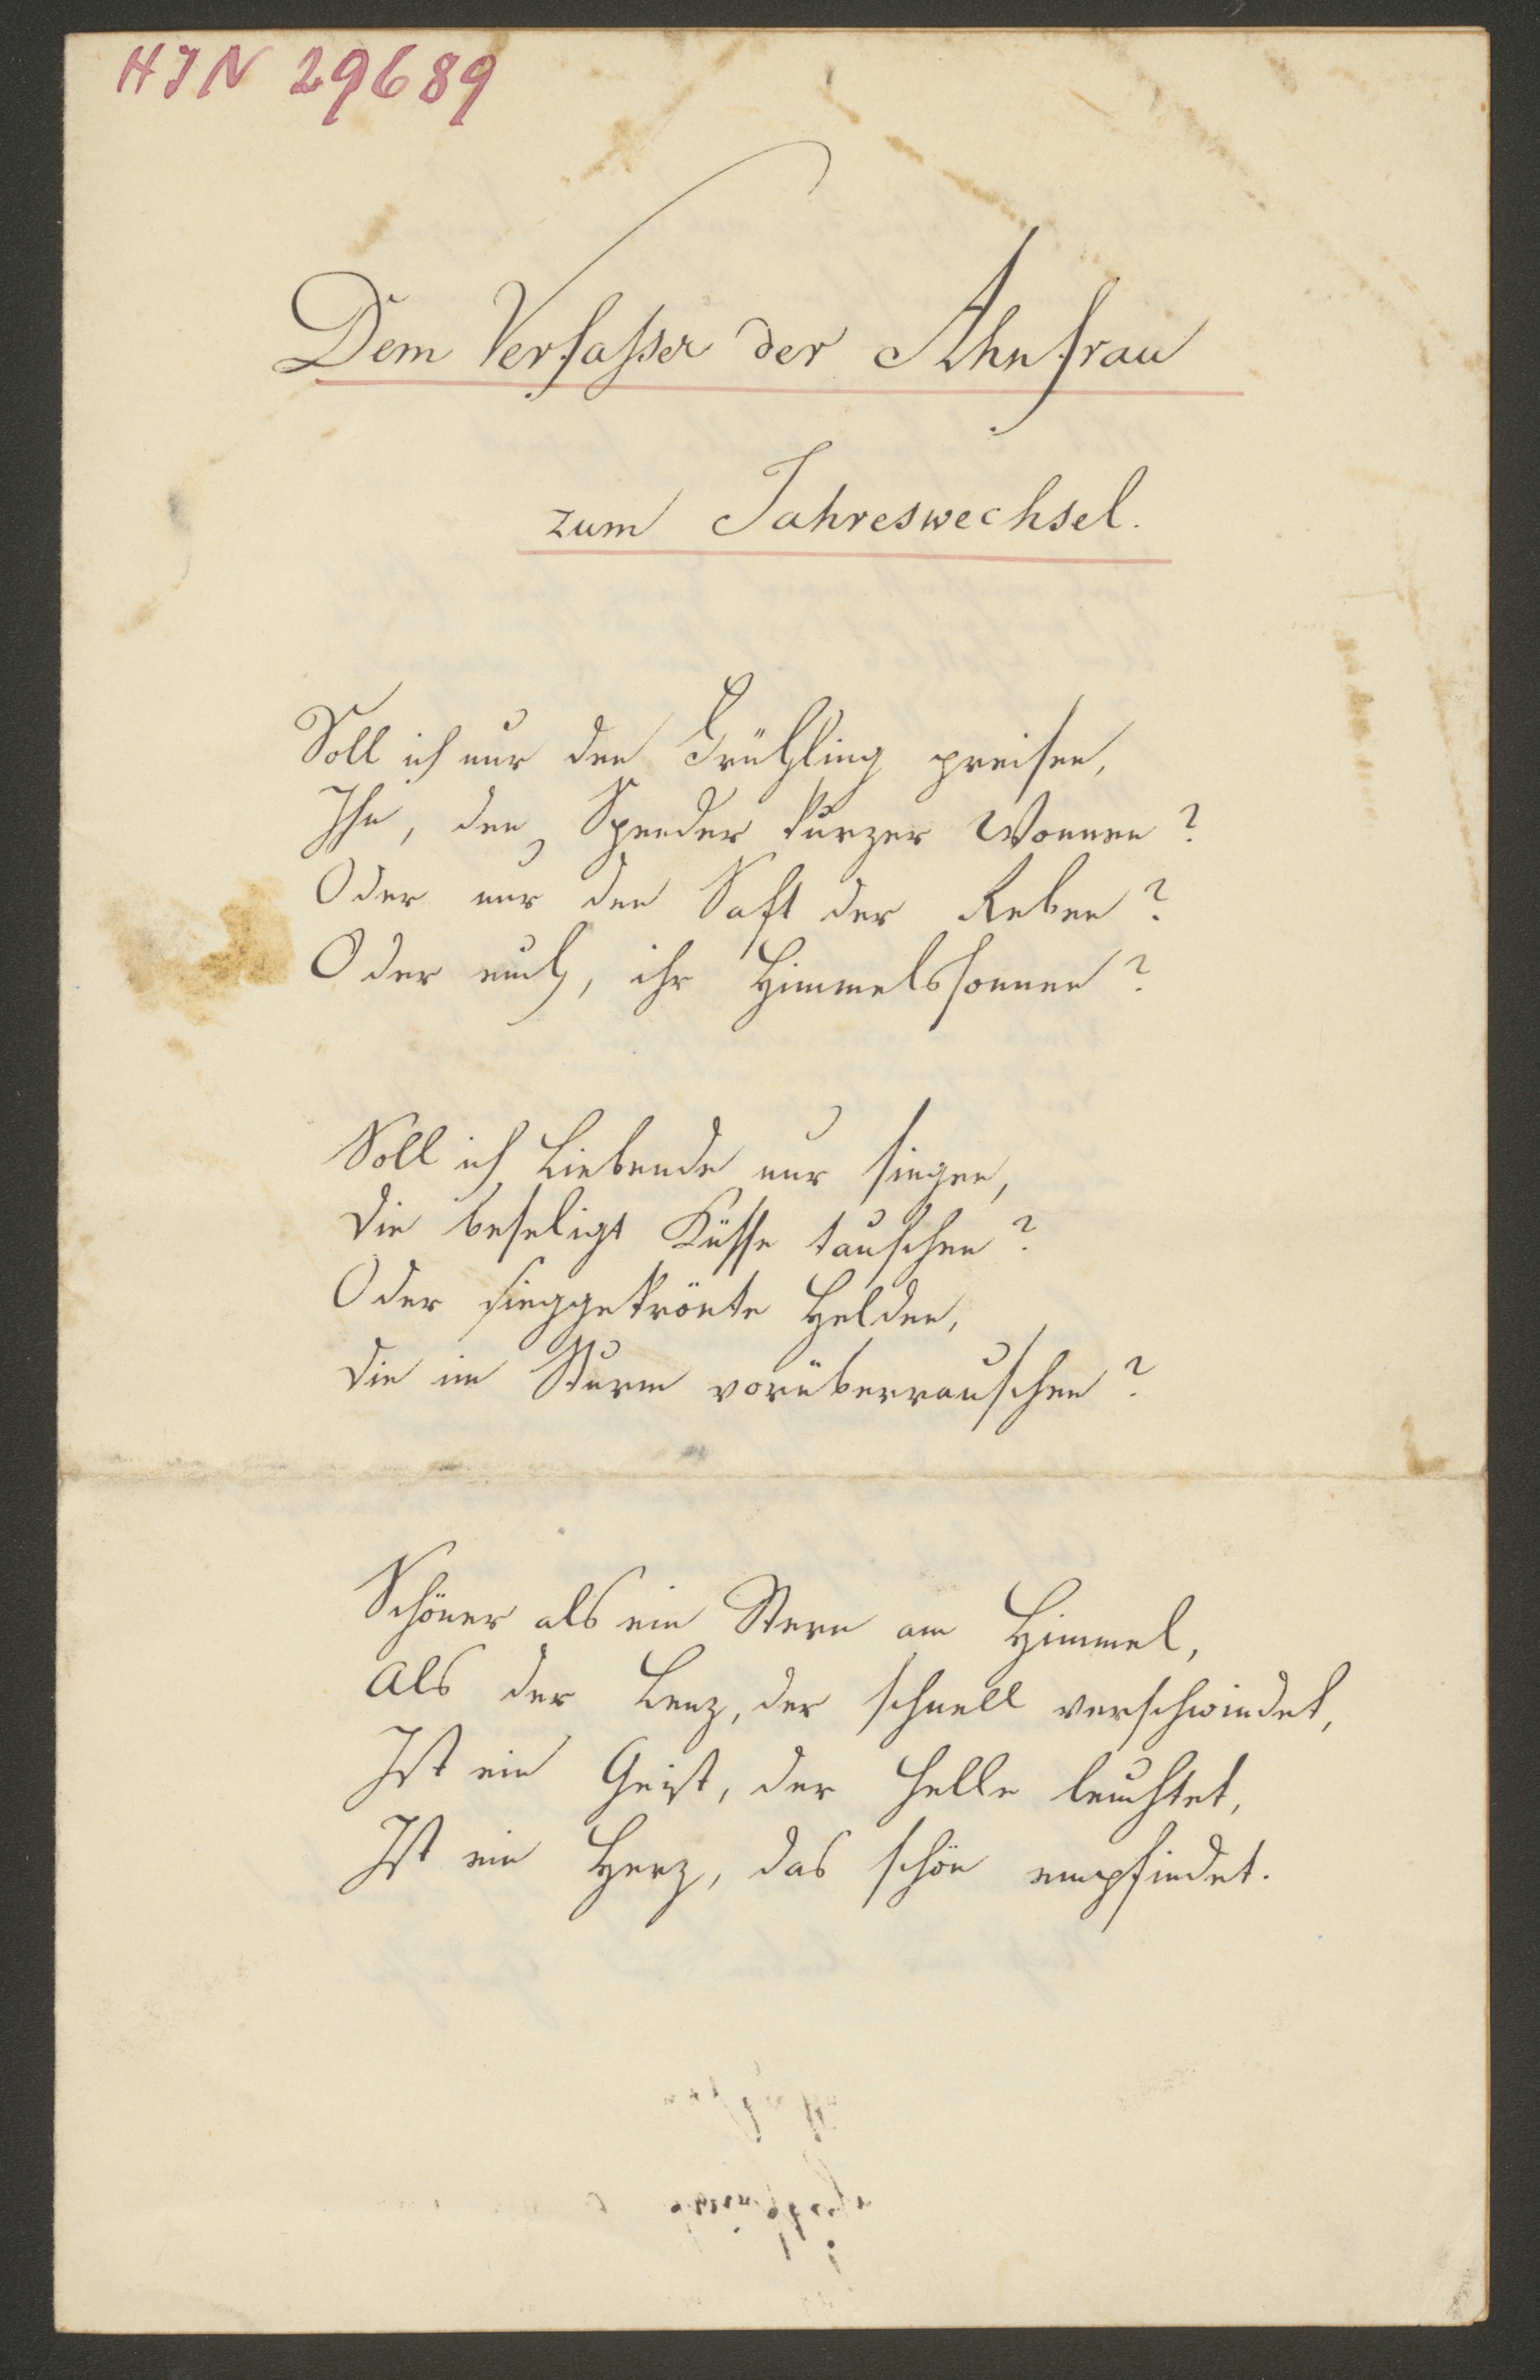 HIN 29689
Dem Verfasser der Ahnfrau
zum Jahreswechsel.
Soll ich nur den Frühling preisen,
Ihn, den Spender kurzer Wonnen?
Oder nur den Saft der Reben?
Oder euch, ihr Himmelssonnen?
Soll ich Liebende nur singen,
Die beseligt Küsse tauschen?
Oder sieggekrönte Helden,
Die im Sturm vorüberrauschen?
Schöner als ein Stern am Himmel,
Als der Lenz, der schnell verschwindet,
Ist ein Geist, der helle leuchtet,
Ist ein Herz, das schön empfindet.